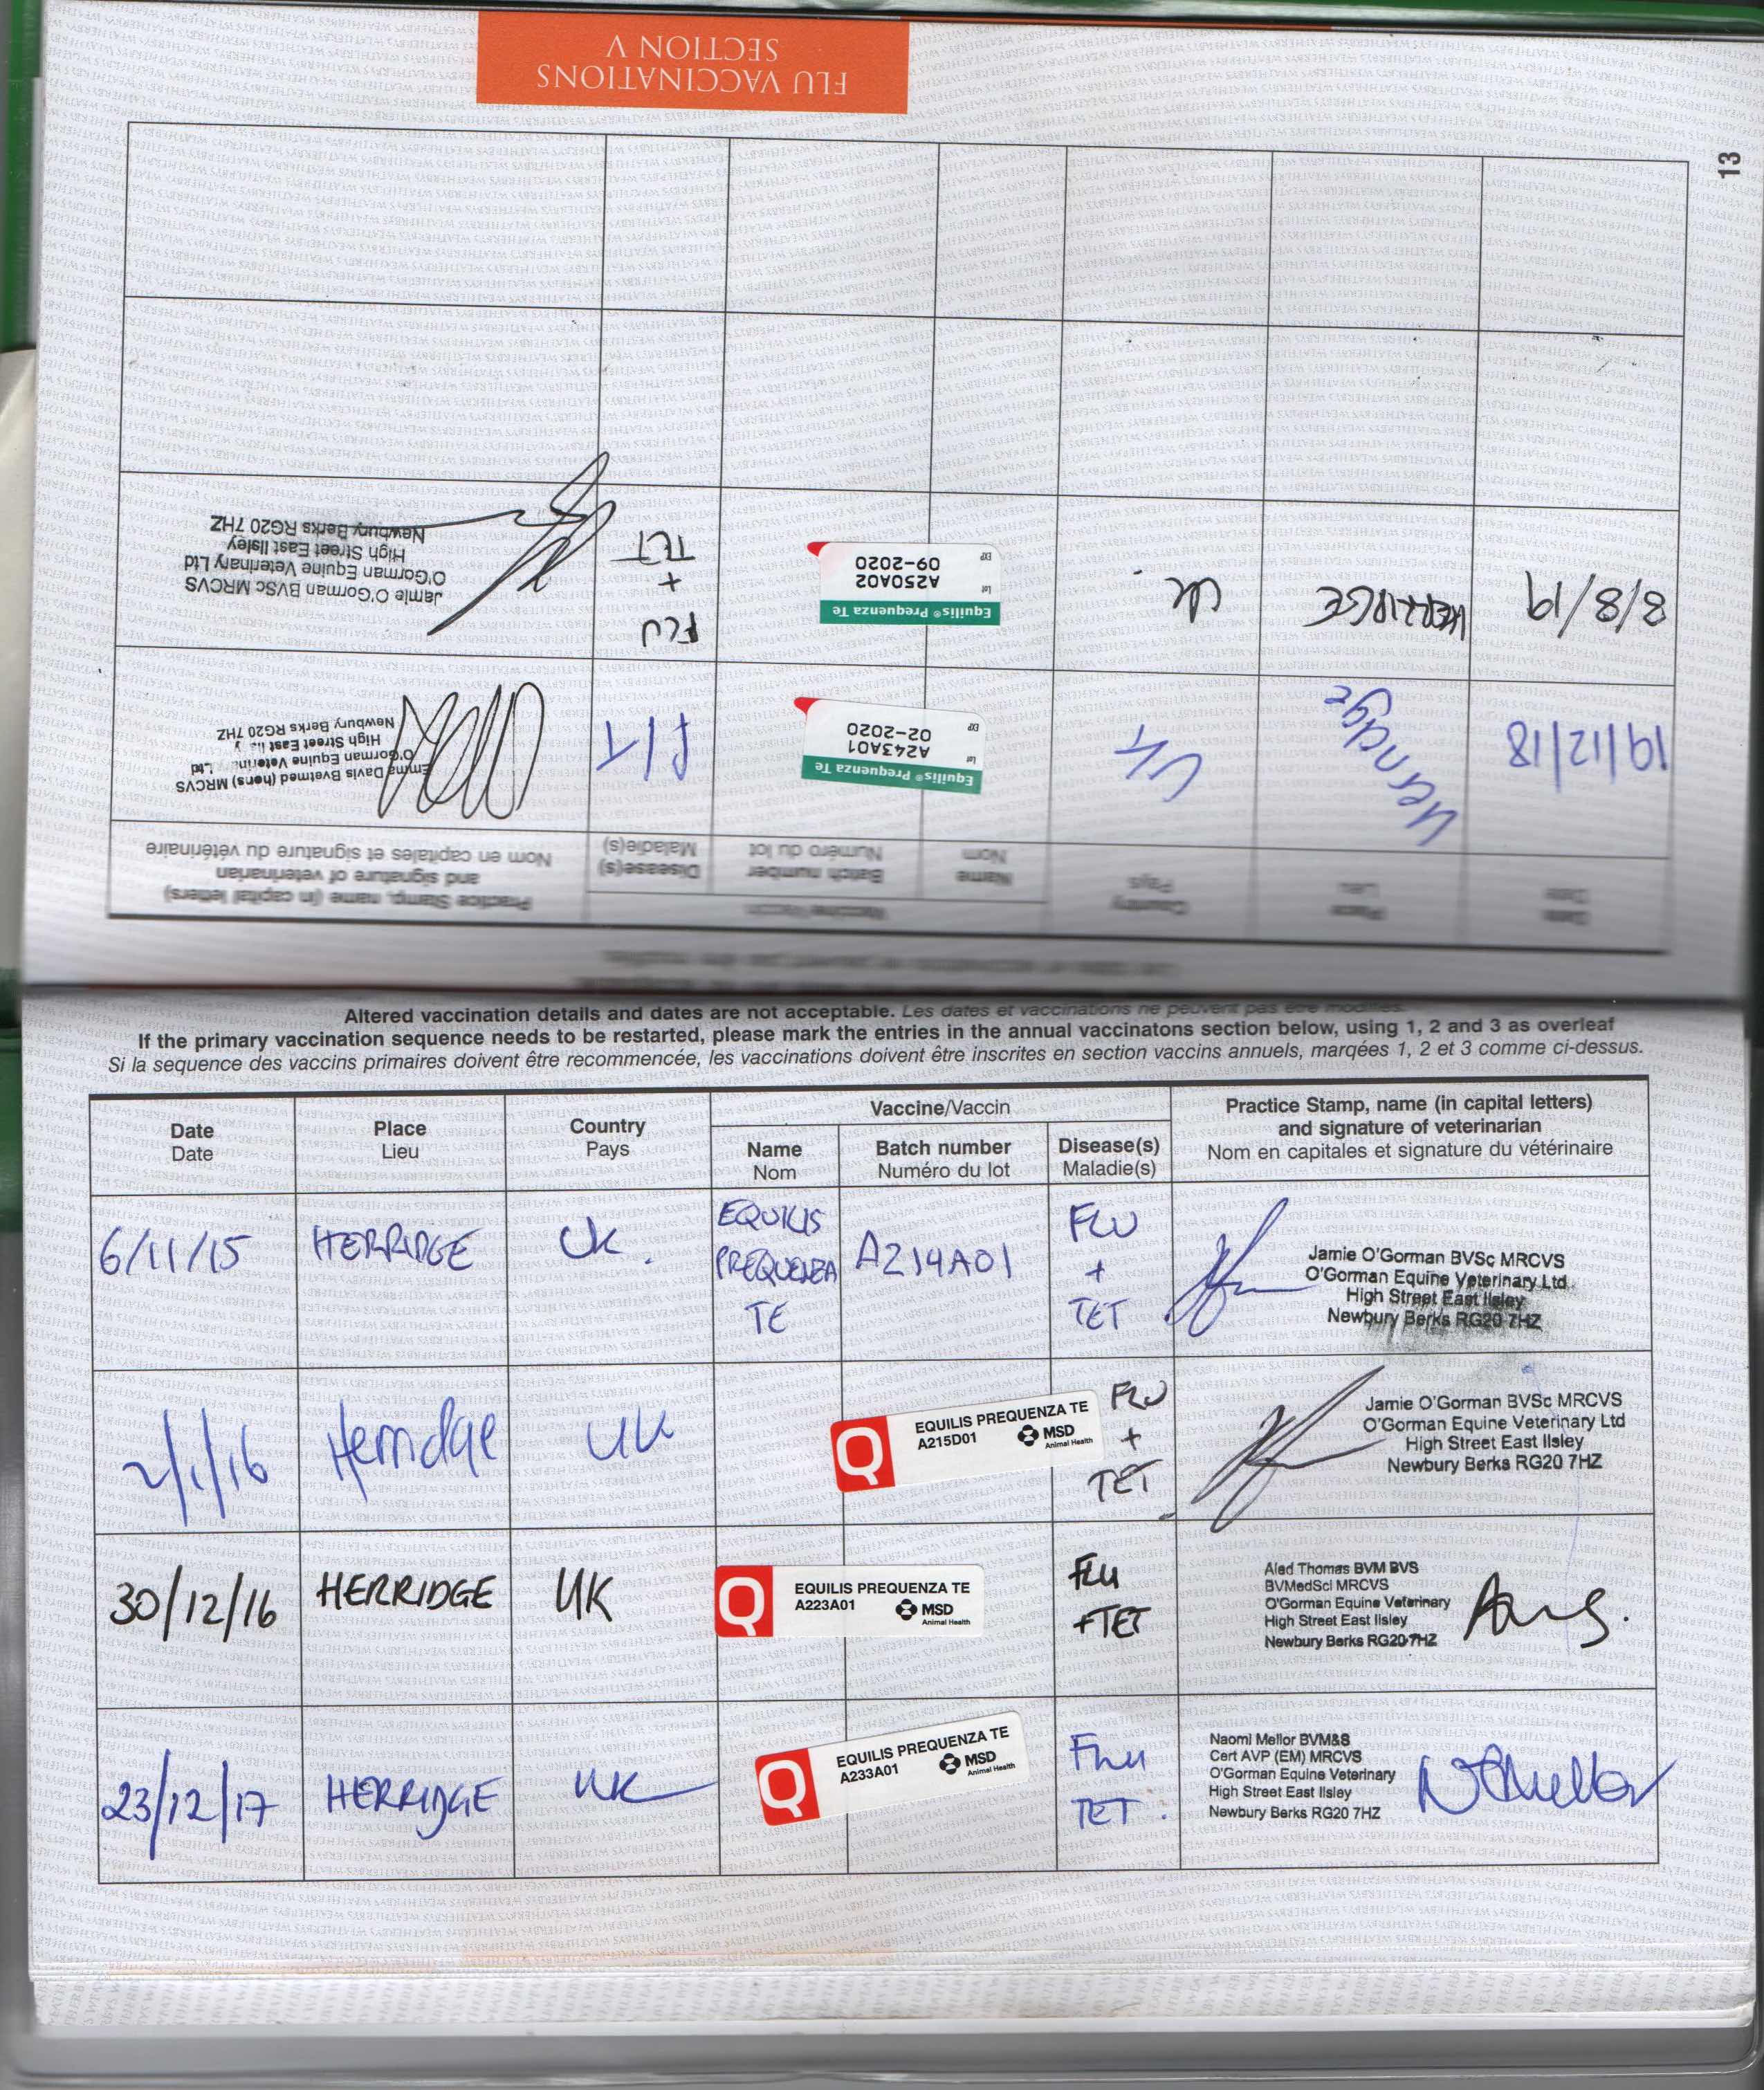 FLU VACCINATIONS
SECTION V
13
Date
Date
Place
Lieu
Country
Pays
Vaccine/Vaccin
Name
Nom
Batch number
Numéro du lot
Disease(s)
Maladie(s)
Practice Stamp, name (in capital letters)
and signature of veterinarian
Nom en capitales et signature du vétérinaire
19/12/18
UK
Equilis® Prequenza Te
Lot A243A01
EXP 02-2020
F/T
Emma Davis Bvetmed (hons) MRCVS
O'Gorman Equine Ltd
High Street East
Newbury Berks RG20 7HZ
8/8/19
HERRIDGE
UK
Equilis® Prequenza Te
Lot A250A02
EXP 09-2020
FLU
+
TET
Jamie O'Gorman BVSc MRCVS
O'Gorman Equine Veterinary Ltd
High Street East Ilsley
Newbury Berks RG20 7HZ
Altered vaccination details and dates are not acceptable. Les dates et vaccinations ne peuvent pas être modifiés.
If the primary vaccination sequence needs to be restarted, please mark the entries in the annual vaccinatons section below, using 1, 2 and 3 as overleaf
Si la sequence des vaccins primaires doivent être recommencée, les vaccinations doivent être inscrites en section vaccins annuels, marqées 1, 2 et 3 comme ci-dessus.
Date
Date
Place
Lieu
Country
Pays
Vaccine/Vaccin
Name
Nom
Batch number
Numéro du lot
Disease(s)
Maladie(s)
Practice Stamp, name (in capital letters)
and signature of veterinarian
Nom en capitales et signature du vétérinaire
6/11/15
HERRIDGE
UK.
EQUILIS
PREQUENZA
TE
A214A01
FLU
+
TET
Jamie O'Gorman BVSc MRCVS
O'Gorman Equine Veterinary Ltd
High Street East Ilsley
Newbury Berks RG20 7HZ
2/1/16
Herridge
UK
Q
EQUILIS PREQUENZA TE
A215D01
MSD
Animal Health
FLU
+
TET
Jamie O'Gorman BVSc MRCVS
O'Gorman Equine Veterinary Ltd
High Street East Ilsley
Newbury Berks RG20 7HZ
30/12/16
HERRIDGE
UK
Q
EQUILIS PREQUENZA TE
A223A01
MSD
Animal Health
FLU
+TET
Aled Thomas BVM BVS
BVMedSci MRCVS
O'Gorman Equine Veterinary
High Street East Ilsley
Newbury Berks RG20 7HZ
23/12/17
HERRIDGE
UK
Q
EQUILIS PREQUENZA TE
A233A01
MSD
Animal Health
Flu
TET.
Naomi Mellor BVM&S
Cert AVP (EM) MRCVS
O'Gorman Equine Veterinary
High Street East Ilsley
Newbury Berks RG20 7HZ